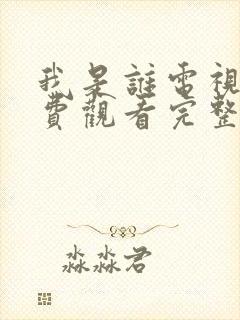 我是誰電視
費觀看完整
淼淼君